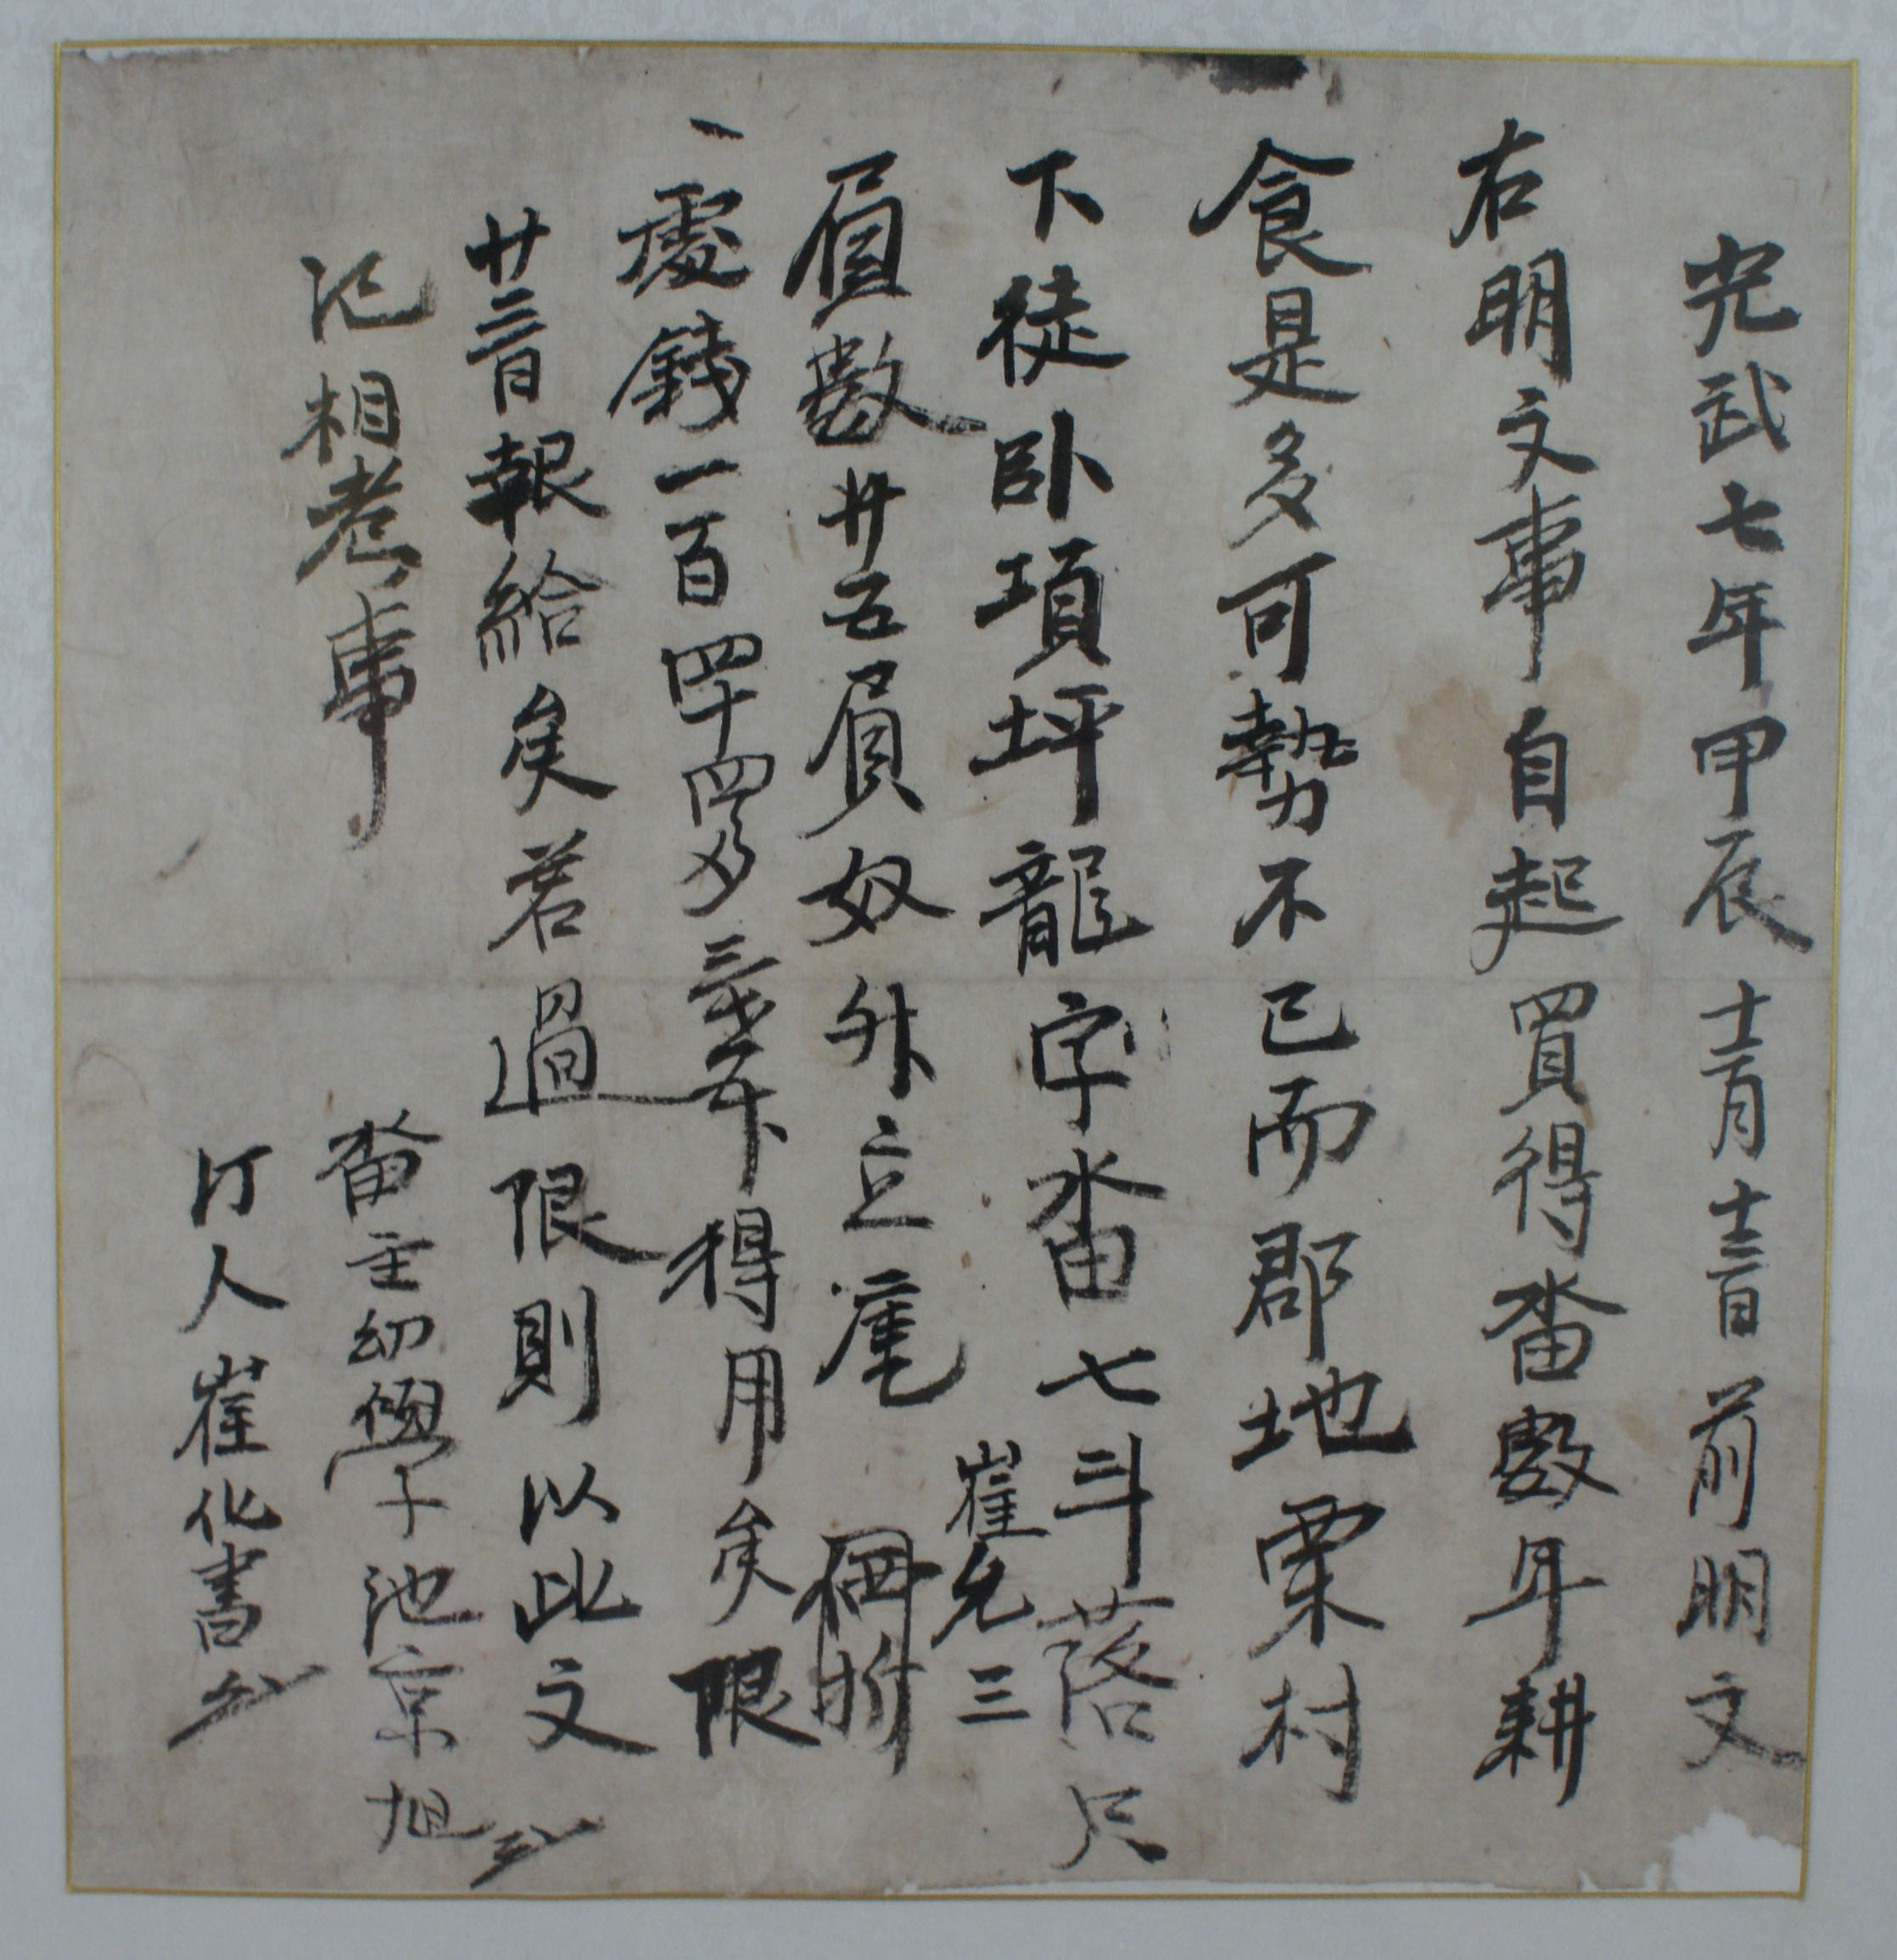 光武七年甲辰十二月十三日前明文
右明文事自起買得畓數年耕
食是多可勢不已而郡地栗村
下徒卧項坪龍字畓七斗落只
崔允三
庫數廿五庫奴外立庵
處錢一百四十四 得用矣限
廿三日報給矣若過限則以此文
記相考事
畓主幼學池京旭
訂人崔化書